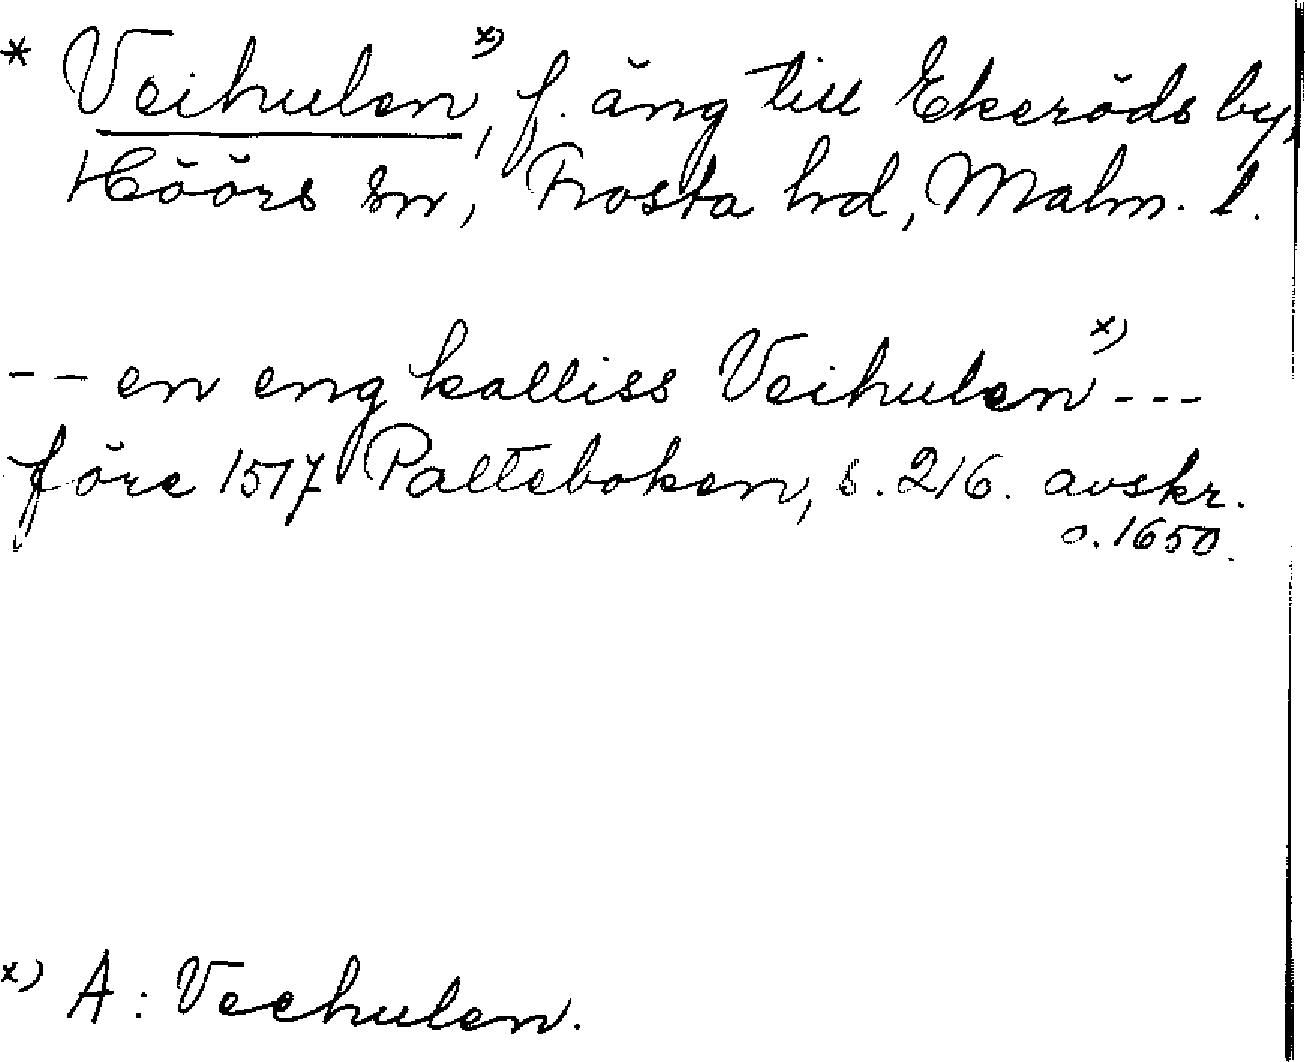 * Veihulen x), f. äng till Ekeröds by,
Höörs sn, Frosta hd, Malm. l.
-- en eng kalliss Veihulen x) ---
före 1517 Palteboken, s. 216. avskr.
o. 1650.
x) A: Veehulen.